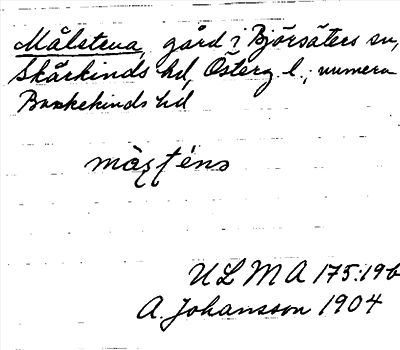 Målstena, gård i Björsäters sn,
Skärkinds hd, Österg. l.; numera
Bankekinds hd
ULMA 175:196
A. Johansson 1904